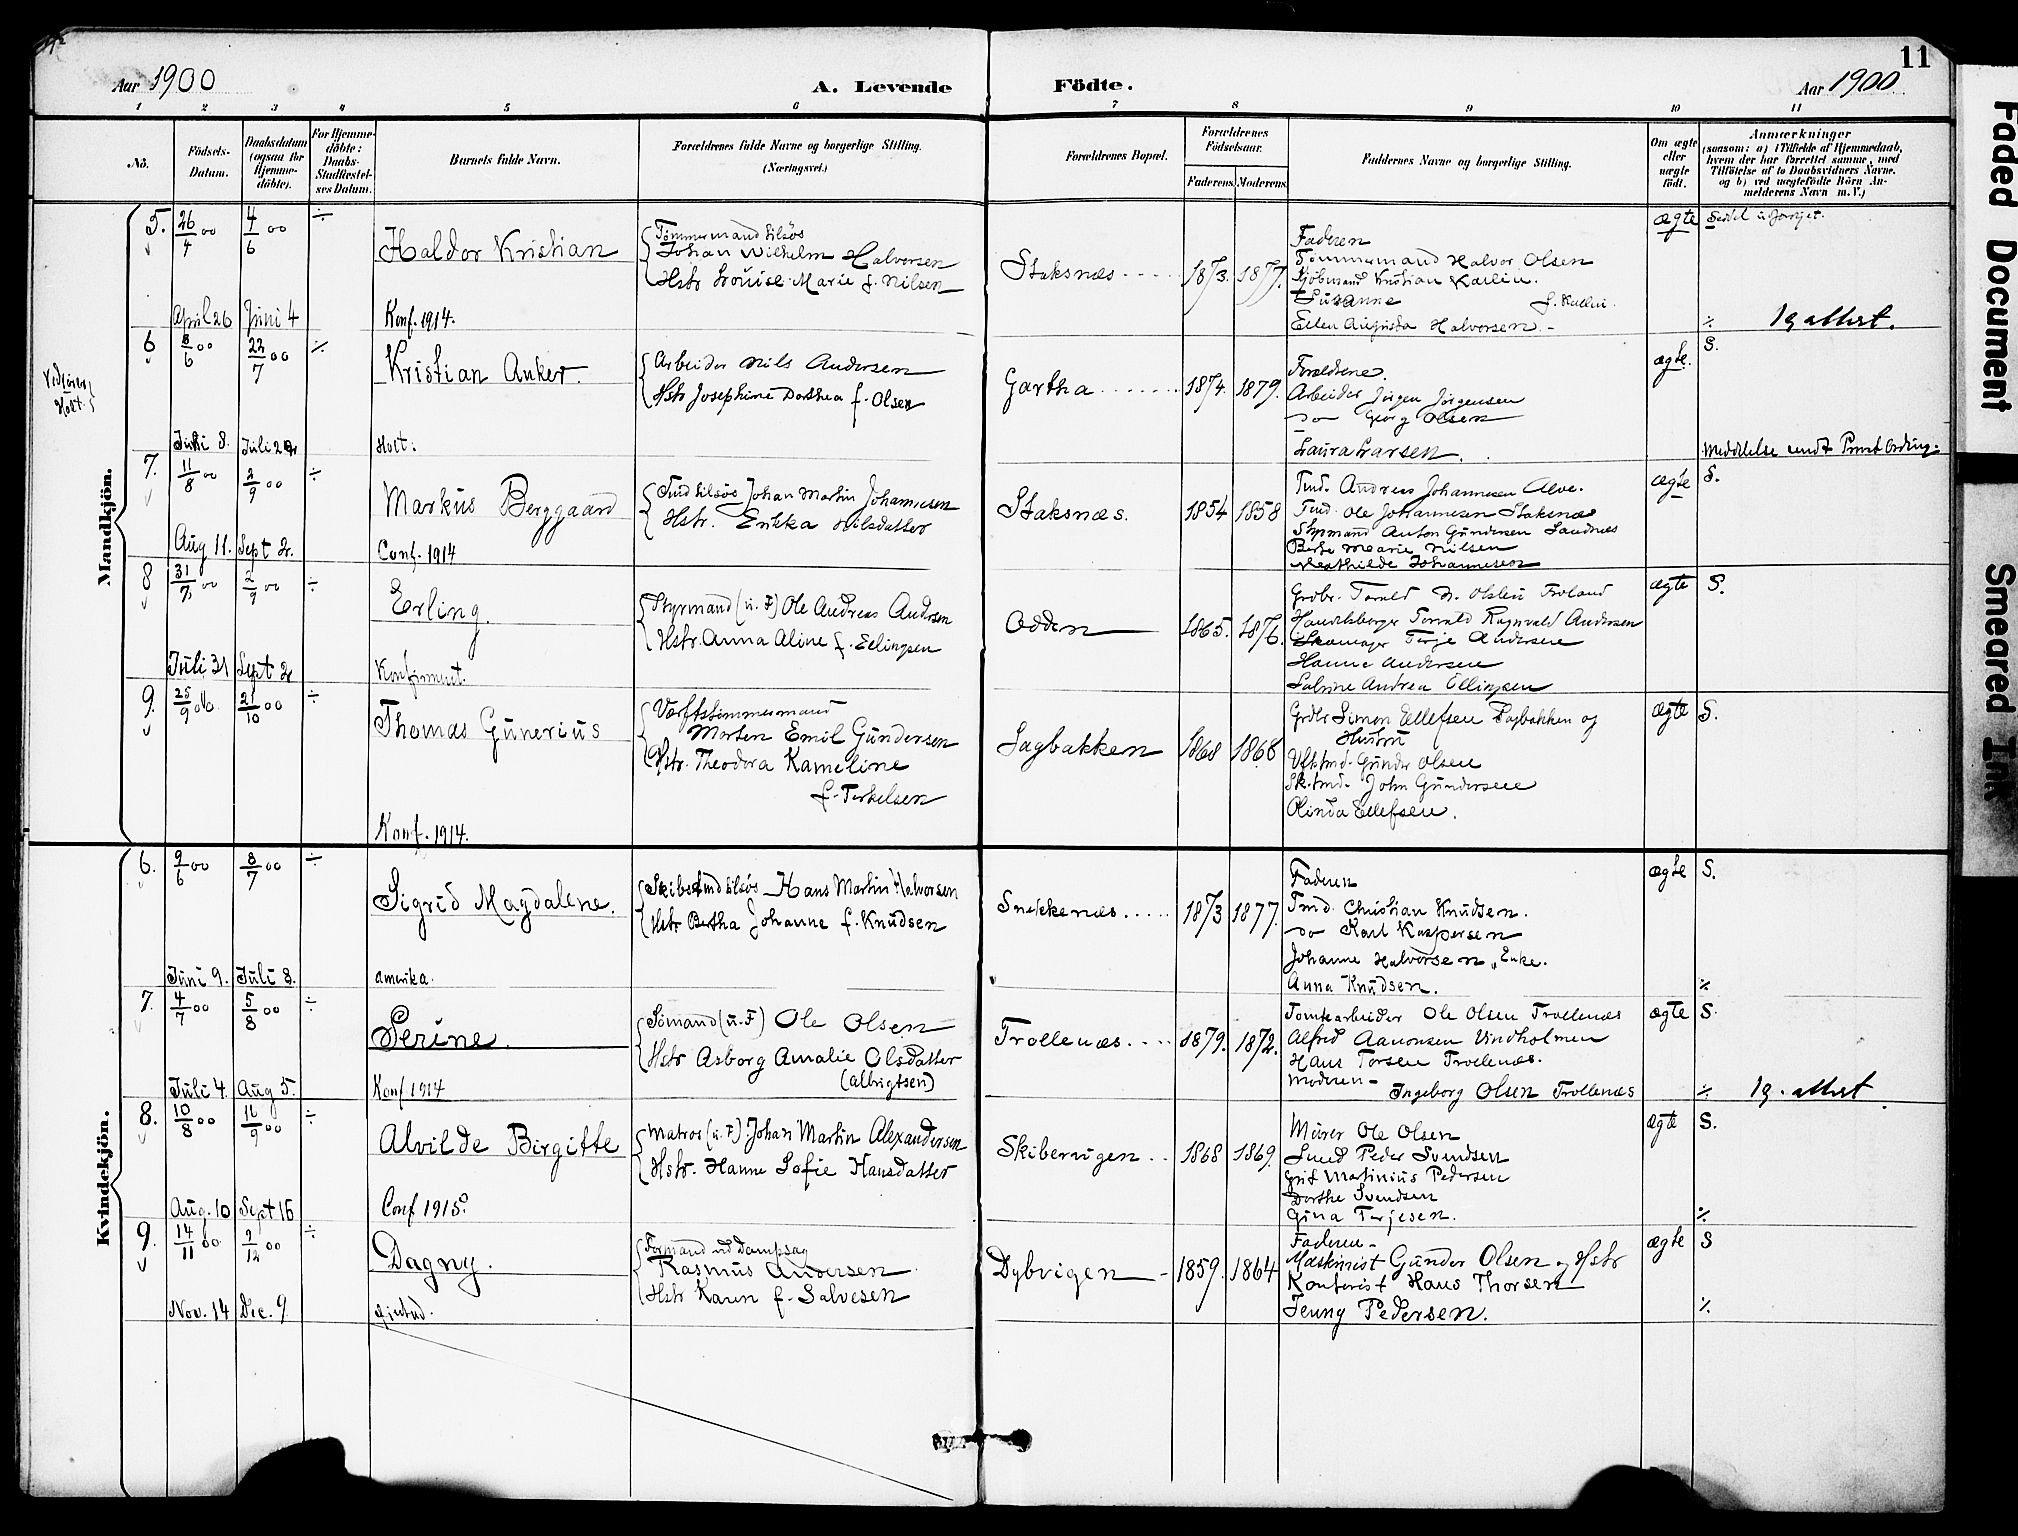 11
Aar 1900
A. Levende Födte.
Aar 1900.
1 2 3 4 5 6 7 8 9 10 11
No.
Födsels-Datum.
Daabsdatum (ogsaa for Hjemme-döbte).
For Hjemme-döbte: Daabs-Stadfæstel-ses Datum.
Barnets fulde Navn.
Forældrenes fulde Navne og borgerlige Stilling. (Næringsvei.)
Forældrenes Bopæl.
Forældrenes Födselsaar.
Faderens Moderens
Faddernes Navne og borgerlige Stilling.
Om ægte eller uægte födt.
Anmærkninger
(saasom: a) i Tilfælde af Hjemmedaab,
hvem der har forrettet samme, med
Tilföielse af to Daabsvidners Navne.
og b) ved uægtefödte Börn An-
melderens Navn m. V.)
Mandkjön.
5. 26/4 00 4/6 00 ÷
Haldor Kristian
Tömmermand tilsøs
Johan Wilhelm Halvorsen
Hstr Lovise Marie f. Nilsen
Staksnæs
1873. 1877.
Faderen
Tömmermand Halvor Olsen
Kristian Karlin.
Susanne
Ellen Augusta Halvorsen
ægte
April 26 Juni 4
Konf. 1914.
6 8/6 00 22/7 00 ÷
Holt.
Kristian Anker.
Arbeider Nils Andersen
Hstr Josephine Dorthea f. Olsen
Gartha
1874. 1879.
Forældrene.
Arbeider Jörgen Jörgensen
do Georg Olsen
Laura Larsen.
ægte.
S.
Juni 8. Juli 22
Holt.
Meddelelse sendt
7. 11/8 00 2/9 00 ÷
Markus Berggaard
Tmd tilsøs Johan Martin Johannesen
Hstr. Erikka Nilsdatter
Staksnæs.
1854 1858
Tmd. Andreas Johannesen Alve.
Tmd. Ole Johannesen Staksnæs
Styrmand Anton Gundersen Sandnæs
Berte Marie Nilsen
Mathilde Johannesen
ægte
S.
Aug 11. Sept 2.
Conf. 1914
8 31/7 00 2/9 00 ÷
Erling.
Styrmand (u. F) Ole Andreas Andersen
Hstr. Anna Aline f. Ellingsen
Odden
1865. 1876.
Grdbr. Torald N. Olsen Froland
Handelsborger Torvald Ragnvald Andersen
Skomager Terje Andersen
Hanne Andersen
Sabine Andrea Ellingsen
ægte
S.
Juli 31 Sept 2
Konfirmert.
9. 25/9 00 21/10 00 ÷
Thomas Gunerius
Værftstömmermand
Morten Emil Gundersen
Hstr. Theodora Kameline
f. Terkelsen
Sagbakken
1868 1868
Grdbr Simon Ellefsen Sagbakken og
Hustru
Vftmd. Gunder Olsen
Sk.tmd. John Gundersen
Olinda Ellefsen.
ægte
S.
Konf. 1914.
Kvindekjön.
6. 9/6 00 8/7 00 ÷
Sigrid Magdalene.
Skibstmd tilsøs Hans Martin Halvorsen
Hstr Bertha Johanne f. Knudsen
Snekkenæs
1873 1877.
Faderen
Tmd. Christian Knudsen.
do Karl Kaspersen
Johanne Halvorsen, Enke.
Anna Knudsen.
ægte
S.
Juni 9. Juli 8.
Amerika.
7. 4/7 00 5/8 00 ÷
Serine.
Sömand (u. F) Ole Olsen
Hstr Asborg Amalie Olsdatter
(Albrigtsen)
Trollenæs
1879. 1872.
Tomtearbeider Ole Olsen Trollenæs
Alfred Aanonsen Vindholmen
Hans Torsen Trollenæs.
Moderen
Ingeborg Olsen Trollenæs
ægte
S.
Juli 4. Aug 5.
Konf 1914
8. 10/8 00 16/9 00 ÷
Alvilde Birgitte
Matros (u. F) Johan Martin Alexandersen
Hstr. Hanne Sofie Hansdatter
Skibervigen
1868 1869.
Murer Ole Olsen
Smed Peder Svendsen
Martinius Pedersen
Dorthe Svendsen
Gina Terjesen.
ægte
S.
Aug. 10 Sept 16
Conf 1915.
9. 14/11 00 9/12 00 ÷
Dagny.
Formand ved Dampsag
Rasmus Andersen
Hstr Karen f. Salvesen
Dybvigen
1859. 1864
Faderen
Maskinist Gunder Olsen og Hstr
Kontorist Hans Thorsen
Jenny Pedersen.
ægte
S
Nov. 14 Dec. 9
Faded Document
Smeared Ink